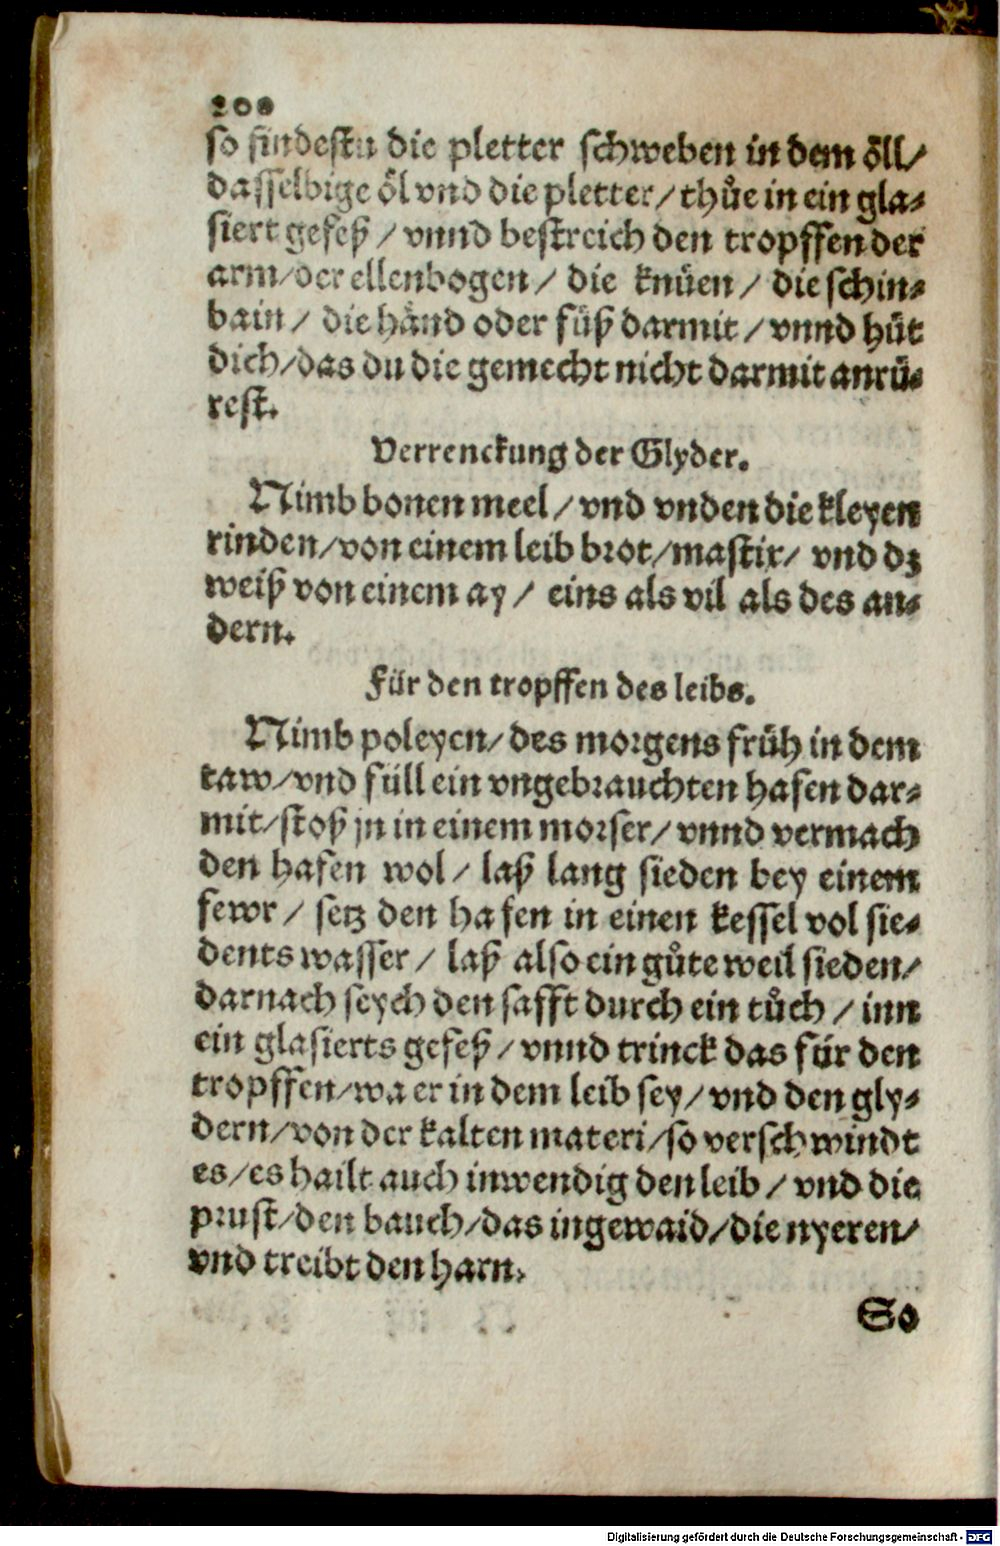 208
so findestu die pletter schweben in dem öll/
dasselbige öl vnd die pletter/ thůe in ein gla⸗
siert gefeß / vnnd bestreich den tropffen der
arm/der ellenbogen / die knüen / die schin⸗
bain / die händ oder füß darmit / vnnd hüt
dich/das du die gemecht nicht darmit anrü⸗
rest.
Verrenckung der Glyder.
Nimb bonen meel / vnd vnden die kleyen
rinden/von einem leib brot/mastix/ vnd dz
weiß von einem ay / eins als vil als des an⸗
dern.
Für den tropffen des leibs.
Nimb poleyen/ des morgens früh in dem
taw/vnd füll ein vngebrauchten hafen dar⸗
mit/stoß jn in einem morser/ vnnd vermach
den hafen wol / laß lang sieden bey einem
fewr / setz den hafen in einen kessel vol sie⸗
dents wasser / laß also ein gůte weil sieden/
darnach seych den safft durch ein tůch / inn
ein glasierts gefeß / vnnd trinck das für den
tropffen/wa er in dem leib sey/ vnd den gly⸗
dern/von der kalten materi/so verschwindt
es/es hailt auch inwendig den leib / vnd die
prust/den bauch/das ingewaid/die nyeren/
vnd treibt den harn.
So
Digitalisierung gefördert durch die Deutsche Forschungsgemeinschaft - DFG